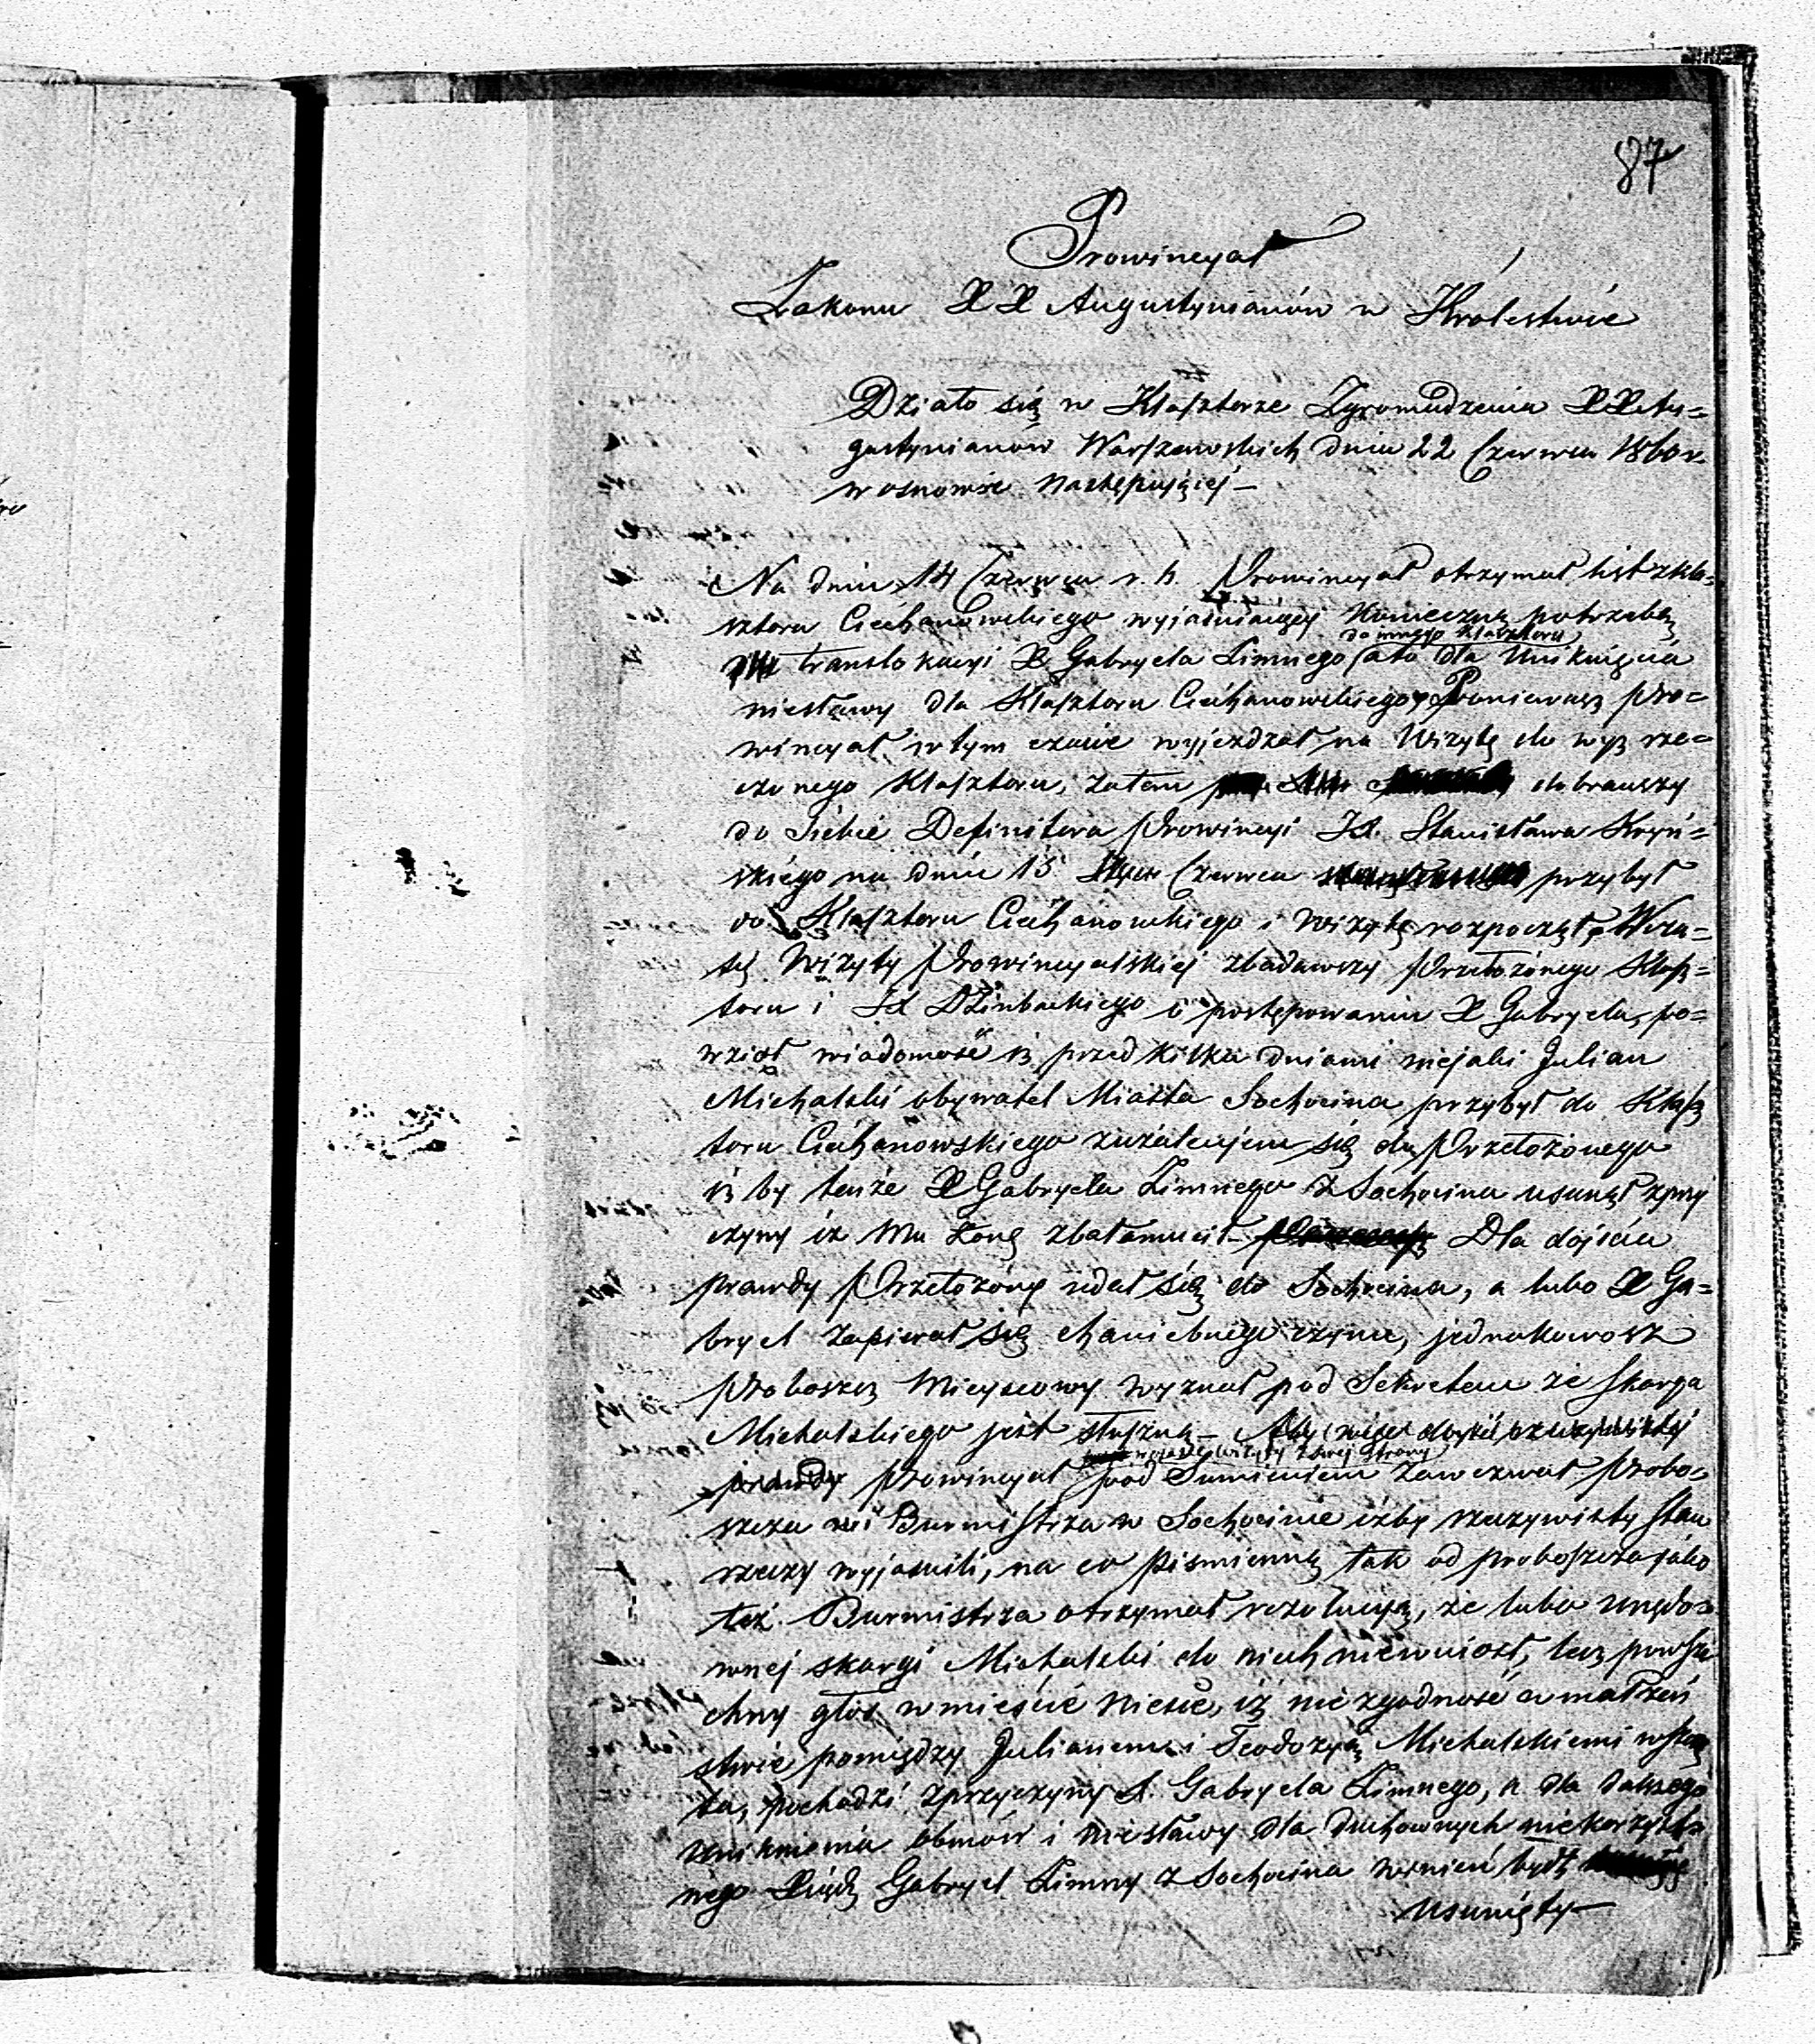 87
Prowincyał
Zakonu XX Augustynianów w Królestwie
Działo się w Klasztorze Zgromadzenia XX Au=
gustynianów Warszawskich dnia 22 Czerwca 1860 r.
w osnowie następującej –
Na dniu 14 Czerwca r. b. Prowincyał otrzymał list z kla=
sztoru Ciechanowskiego wyjaśniający konieczną potrzebę
do innego klasztoru
translokacyi X Gabryela Zimnego a to dla uniknięcia
niesławy dla Klasztoru Ciechanowskiego, Ponieważ Pro=
wincyał w tym czasie wyjeżdżał na Wizytę do wyż rze=
czonego Klasztoru, zatem dobrawszy
do siebie Definitora Prowincyi JX. Stanisława Kryń=
skiego na dniu 15 Czerwca przybył
do Klasztoru Ciechanowskiego i Wizytę rozpoczął. W cza=
sie Wizyty Prowincyalskiej zbadawszy Przełożonego Klasz=
toru i JX Dłinbackiego o postępowaniu X Gabryela, po=
wziął wiadomość iż przed kilku dniami niejaki Julian
Michalski obywatel Miasta Sochocina przybył do Klasz
toru Ciechanowskiego zużaleniem się do Przełożonego
iż by tenże X Gabryela Zimnego z Sochocina usunął z przy
czyny iż Mu żonę zbałamucił – Dla dojścia
prawdy Przełożony udał się do Sochocina, a lubo X Ga=
bryel zapierał się chaniebnego czynu, jednakowosz
Proboszcz Miejscowy wyznał pod Sekretem że skarga
Michalskiego jest słuszną – Aby więc dojść rzeczywistej
w czasie wizyty z swej strony
prawdy Prowincyał pod Sumieniem zawezwał Probo=
szcza i Burmistrza w Sochocinie iżby rzeczywisty stan
rzeczy wyjaśnili, na co piśmienną tak od proboszcza jako
też Burmistrza otrzymał rezolucyą, że lubo urzędo=
wnej skargi Michalski do nich niewniosł, lecz powsze
chny głos w mieście niesie, iż niezgodność w małżeń
stwie pomiędzy Julianem i Teodozyą Michalskiemi wszczę
ta, pochodzi z przyczyny X. Gabryela Zimnego, a dla dalszego
uniknienia obmów i niesławy dla duchownych niekorzyst=
nego Xiądz Gabryel Zimny z Sochocina winien być
usunięty –